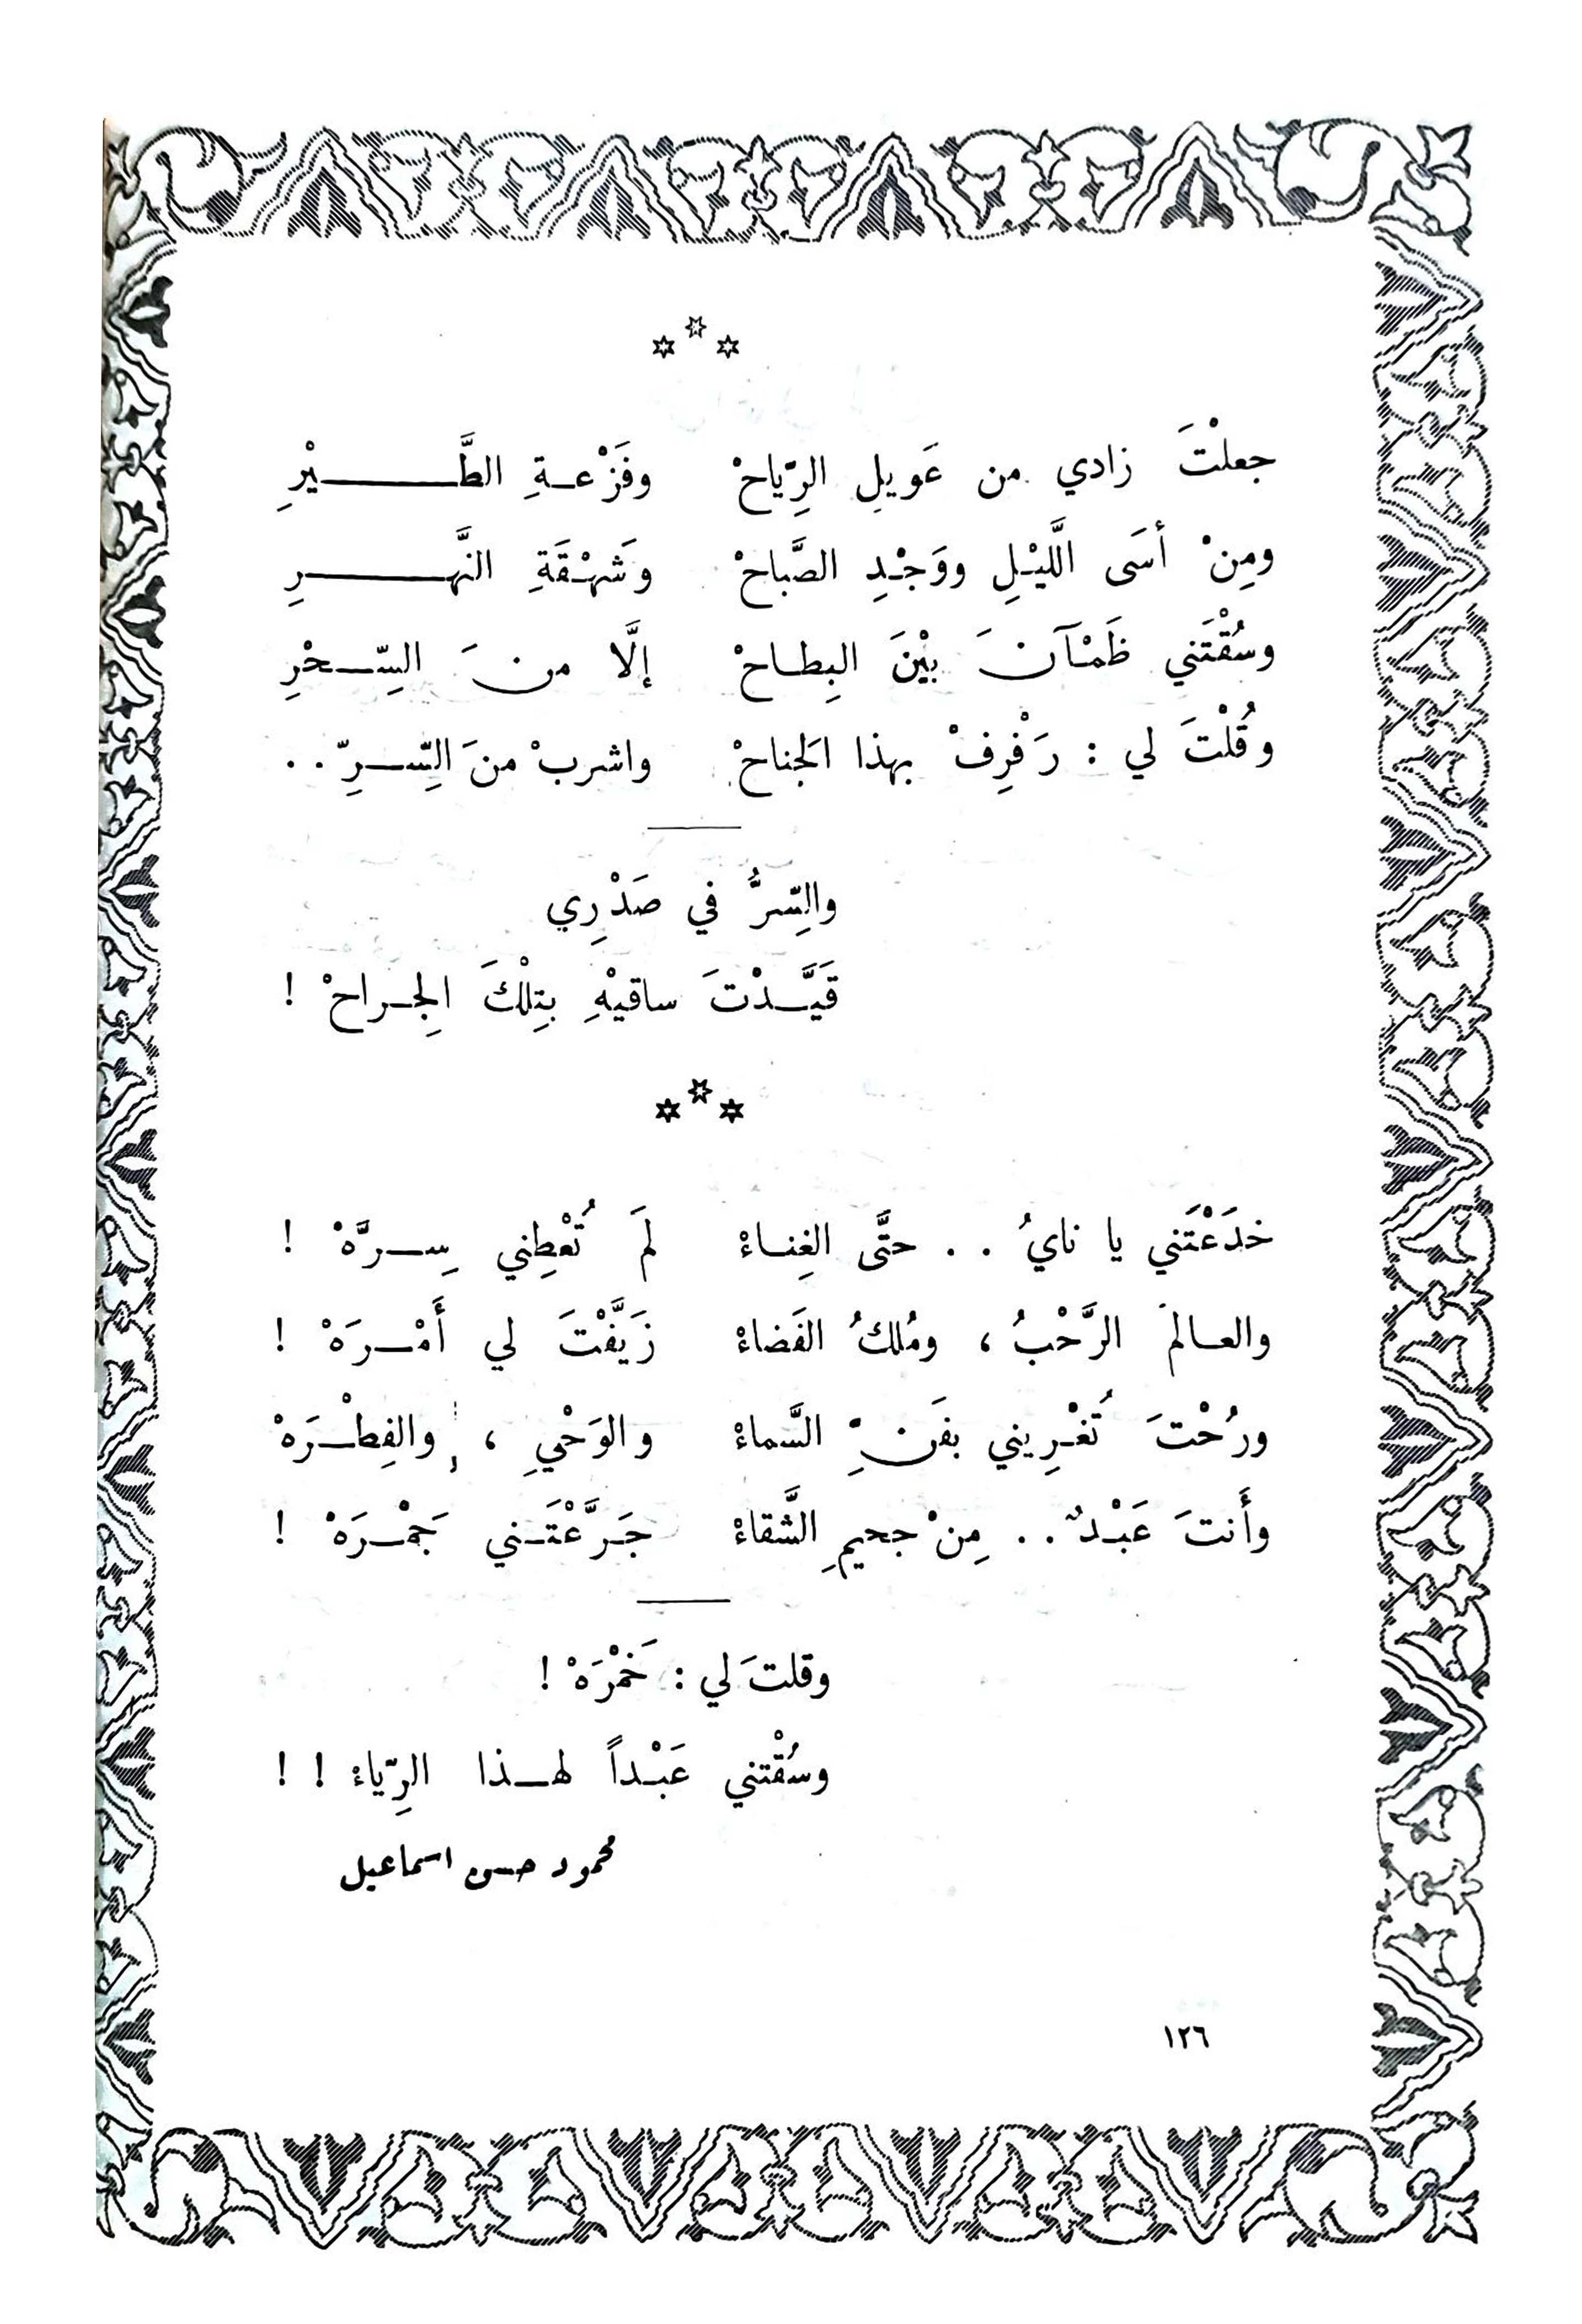 جعلْتَ زادي من عَويلِ الرِّياحْ وفَزْعةِ الطَّيْرِ
ومِنْ أسَى اللَّيْلِ ووَجْدِ الصَّباحْ وشَهْقَةِ النَّهرِ
وسُقْتَني ظَمْآنَ بيْنَ البِطاحْ إلَّا منَ السِّحْرِ
وقُلْتَ لي : رَفْرِفْ بهذا الجَناحْ واشربْ منَ السِّرِّ . .
والسِّرُّ في صَدْرِي
قَيَّدْتَ ساقيْهِ بتِلْكَ الجِراحْ !
خدَعْتَني يا نايُ . . حتَّى الغِناءْ لَم تُعْطِني سِرَّهْ !
والعالَم الرَّحْبُ ، ومُلكُ الفَضاءْ زَيَّفْتَ لي أَمْرَهْ !
ورُحْتَ تُغْرِيني بفَنِّ السَّماءْ والوَحْيِ ، والفِطْرَهْ
وأَنتَ عَبْدٌ . . مِنْ جحيمِ الشَّقاءْ جَرَّعْتَني جَمْرَهْ !
وقلتَ لي : خَمْرَهْ !
وسُقْتني عَبْداً لهذا الرِّياءْ ! !
محمود حسن اسماعيل
١٢٦